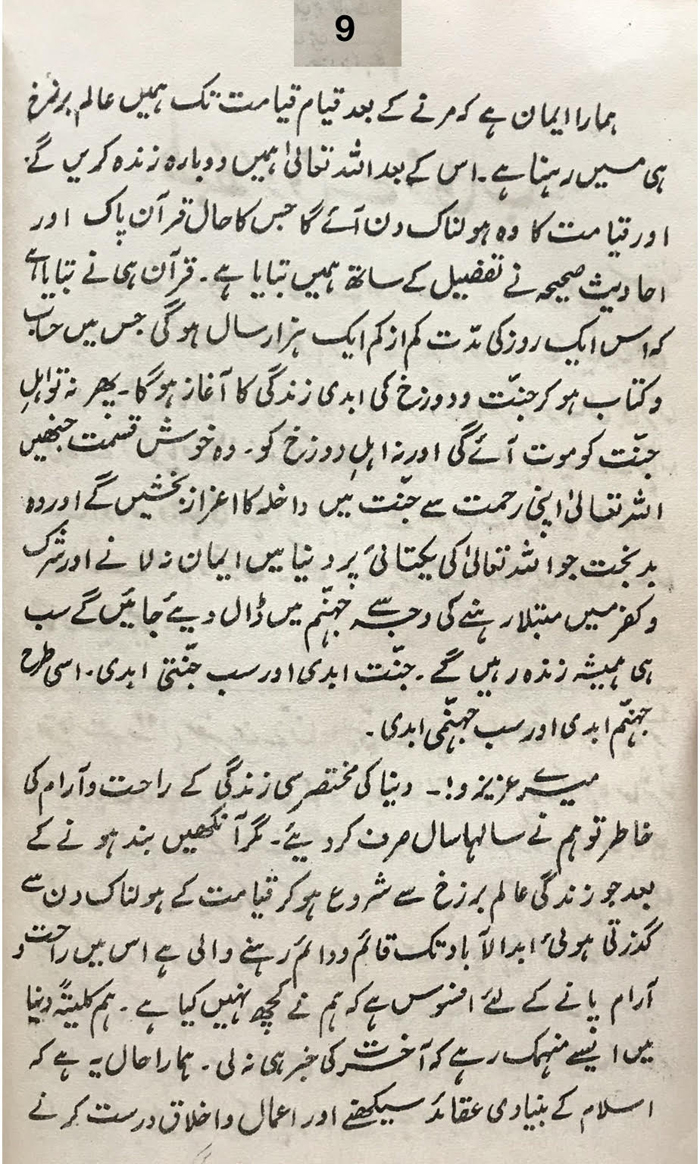 9
ہمارا ایمان ہے کہ مرنے کے بعد قیام قیامت تک ہمیں عالم برزخ
ہی میں رہنا ہے۔ اس کے بعد اللہ تعالیٰ ہمیں دوبارہ زندہ کریں گے
اور قیامت کا وہ ہولناک دن آئے گا جس کا حال قرآن پاک اور
احادیث صحیحہ نے تفصیل کے ساتھ ہمیں بتایا ہے۔ قرآن ہی نے بتایا ہے
کہ اس ایک روز کی مدّت کم از کم ایک ہزار سال ہوگی جس میں حساب
و کتاب ہو کر جنّت و دوزخ کی ابدی زندگی کا آغاز ہوگا۔ پھر نہ تو اہلِ
جنّت کو موت آئے گی اور نہ اہلِ دوزخ کو۔ وہ خوش قسمت جنھیں
اللہ تعالیٰ اپنی رحمت سے جنّت میں داخلہ کا اعزاز بخشیں گے اور وہ
بدبخت جو اللہ تعالیٰ کی یکتائی پر دنیا میں ایمان نہ لانے اور شرک
و کفر میں مبتلا رہنے کی وجہ سے جہنّم میں ڈال دیئے جائیں گے سب
ہی ہمیشہ زندہ رہیں گے۔ جنّت ابدی اور سب جنّتی ابدی۔ اسی طرح
جہنّم ابدی اور سب جہنّمی ابدی۔
میرے عزیزو!۔ دنیا کی مختصر سی زندگی کے راحت و آرام کی
خاطر تو ہم نے سالہا سال صرف کر دیئے۔ مگر آنکھیں بند ہونے کے
بعد جو زندگی عالم برزخ سے شروع ہو کر قیامت کے ہولناک دن سے
گذرتی ہوئی ابد الآباد تک قائم و دائم رہنے والی ہے اس میں راحت و
آرام پانے کے لئے افسوس ہے کہ ہم نے کچھ نہیں کیا ہے۔ ہم کلیتہً دنیا
میں ایسے منہمک رہے کہ آخرت کی خبر ہی نہ لی۔ ہمارا حال یہ ہے کہ
اسلام کے بنیادی عقائد سیکھنے اور اعمال و اخلاق درست کرنے